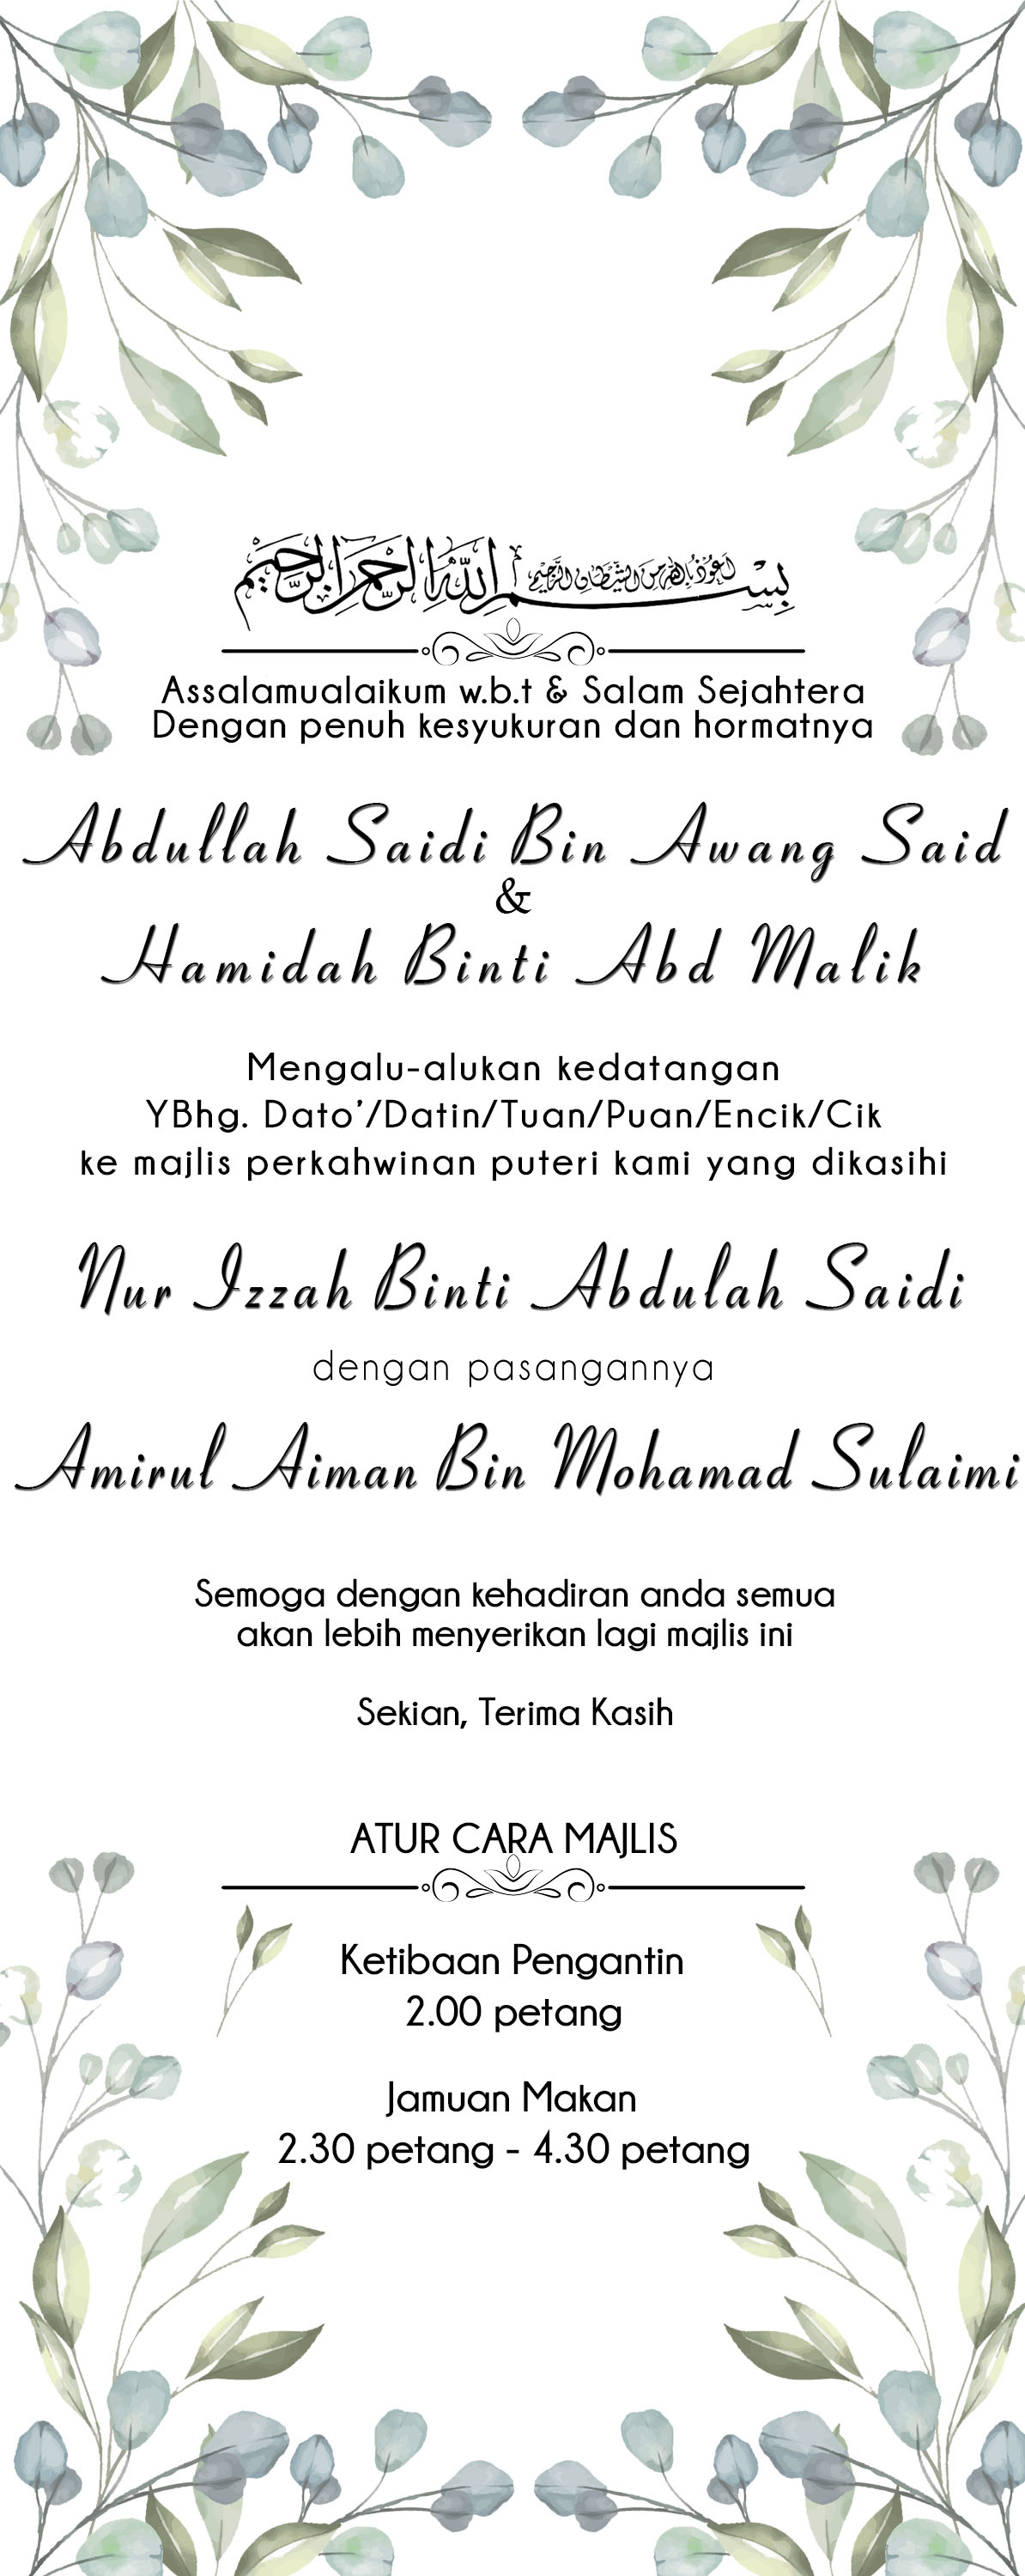 بِسْمِ اللَّهِ الرَّحْمَنِ الرَّحِيمِ
أَعُوذُ بِاللهِ مِنَ الشَّيْطَانِ الرَّجِيمِ
Assalamualaikum w.b.t & Salam Sejahtera
Dengan penuh kesyukuran dan hormatnya
Abdullah Saidi Bin Awang Said
&
Hamidah Binti Abd Malik
Mengalu-alukan kedatangan
YBhg. Dato'/Datin/Tuan/Puan/Encik/Cik
ke majlis perkahwinan puteri kami yang dikasihi
Nur Izzah Binti Abdulah Saidi
dengan pasangannya
Amirul Aiman Bin Mohamad Sulaimi
Semoga dengan kehadiran anda semua
akan lebih menyerikan lagi majlis ini
Sekian, Terima Kasih
ATUR CARA MAJLIS
Ketibaan Pengantin
2.00 petang
Jamuan Makan
2.30 petang - 4.30 petang